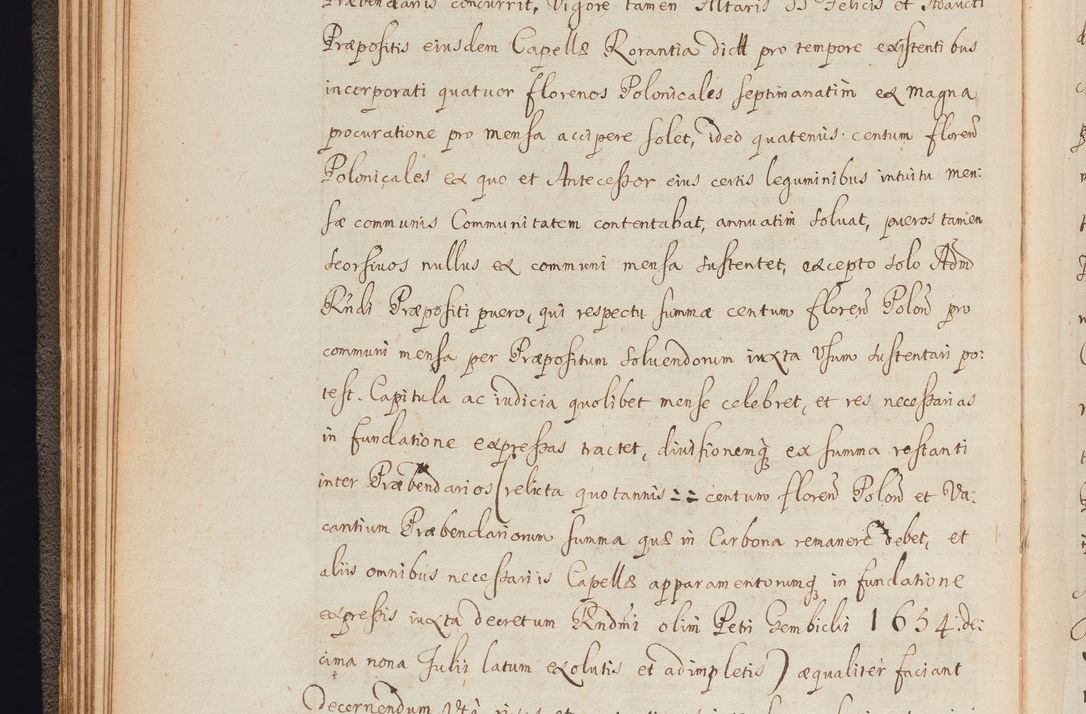 Præbendariis concurrit, Vigore tamen Altaris SS Felicis et Adaucti
Præpositis eiusdem Capellæ Rorantia dict pro tempore existentibus
incorporati quatuor florenos Polonicales septimanatim ex magna
procuratione pro mensa accipere solet, ideo quatenus centum floren
Polonicales ex quo et Antecessor eius certis leguminibus intuitu men:
sæ communis Communitatem contentabat, annuatim soluat, pueros tamen
seorsiuos nullus ex communi mensa sustentet, excepto solo Adm
Rndi Præpositi puero, qui respectu summæ centum floren Polon pro
communi mensa per Præpositum soluendorum iuxta Usum sustentari po:
test. Capitula ac iudicia quolibet mense celebret, et res necessarias
in fundatione expressas tractet, diuisionemq ex summa restanti
inter Præbendarios (relicta quotannis == centum floren Polon et Va:
cantium Præbendariorum summa quæ in Carbona remanere debet, et
aliis omnibus necessariis Capellæ apparamentorumq in fundatione
expressis iuxta decretum Rndmi olim Petri Gembicki 1654. de:
cima nona Julii latum exolutis et adimpletis) æqualiter faciant
decernendum